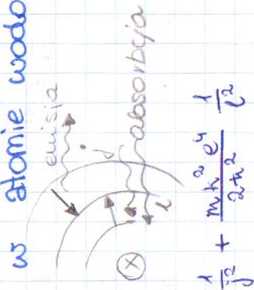 w atomie wodo
emisja
j
absorbcja
i
1/j² + mk²e⁴/2ħ² 1/i²